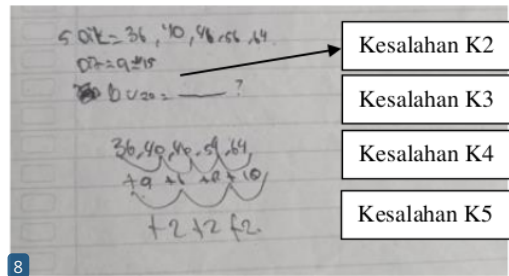 5 Dik = 36, 40, 46, 56, 64.
Dit =
b U20 = ___ ?
36, 40, 46, 54, 64,
+2 +2 +2
Kesalahan K2
Kesalahan K3
Kesalahan K4
Kesalahan K5
8